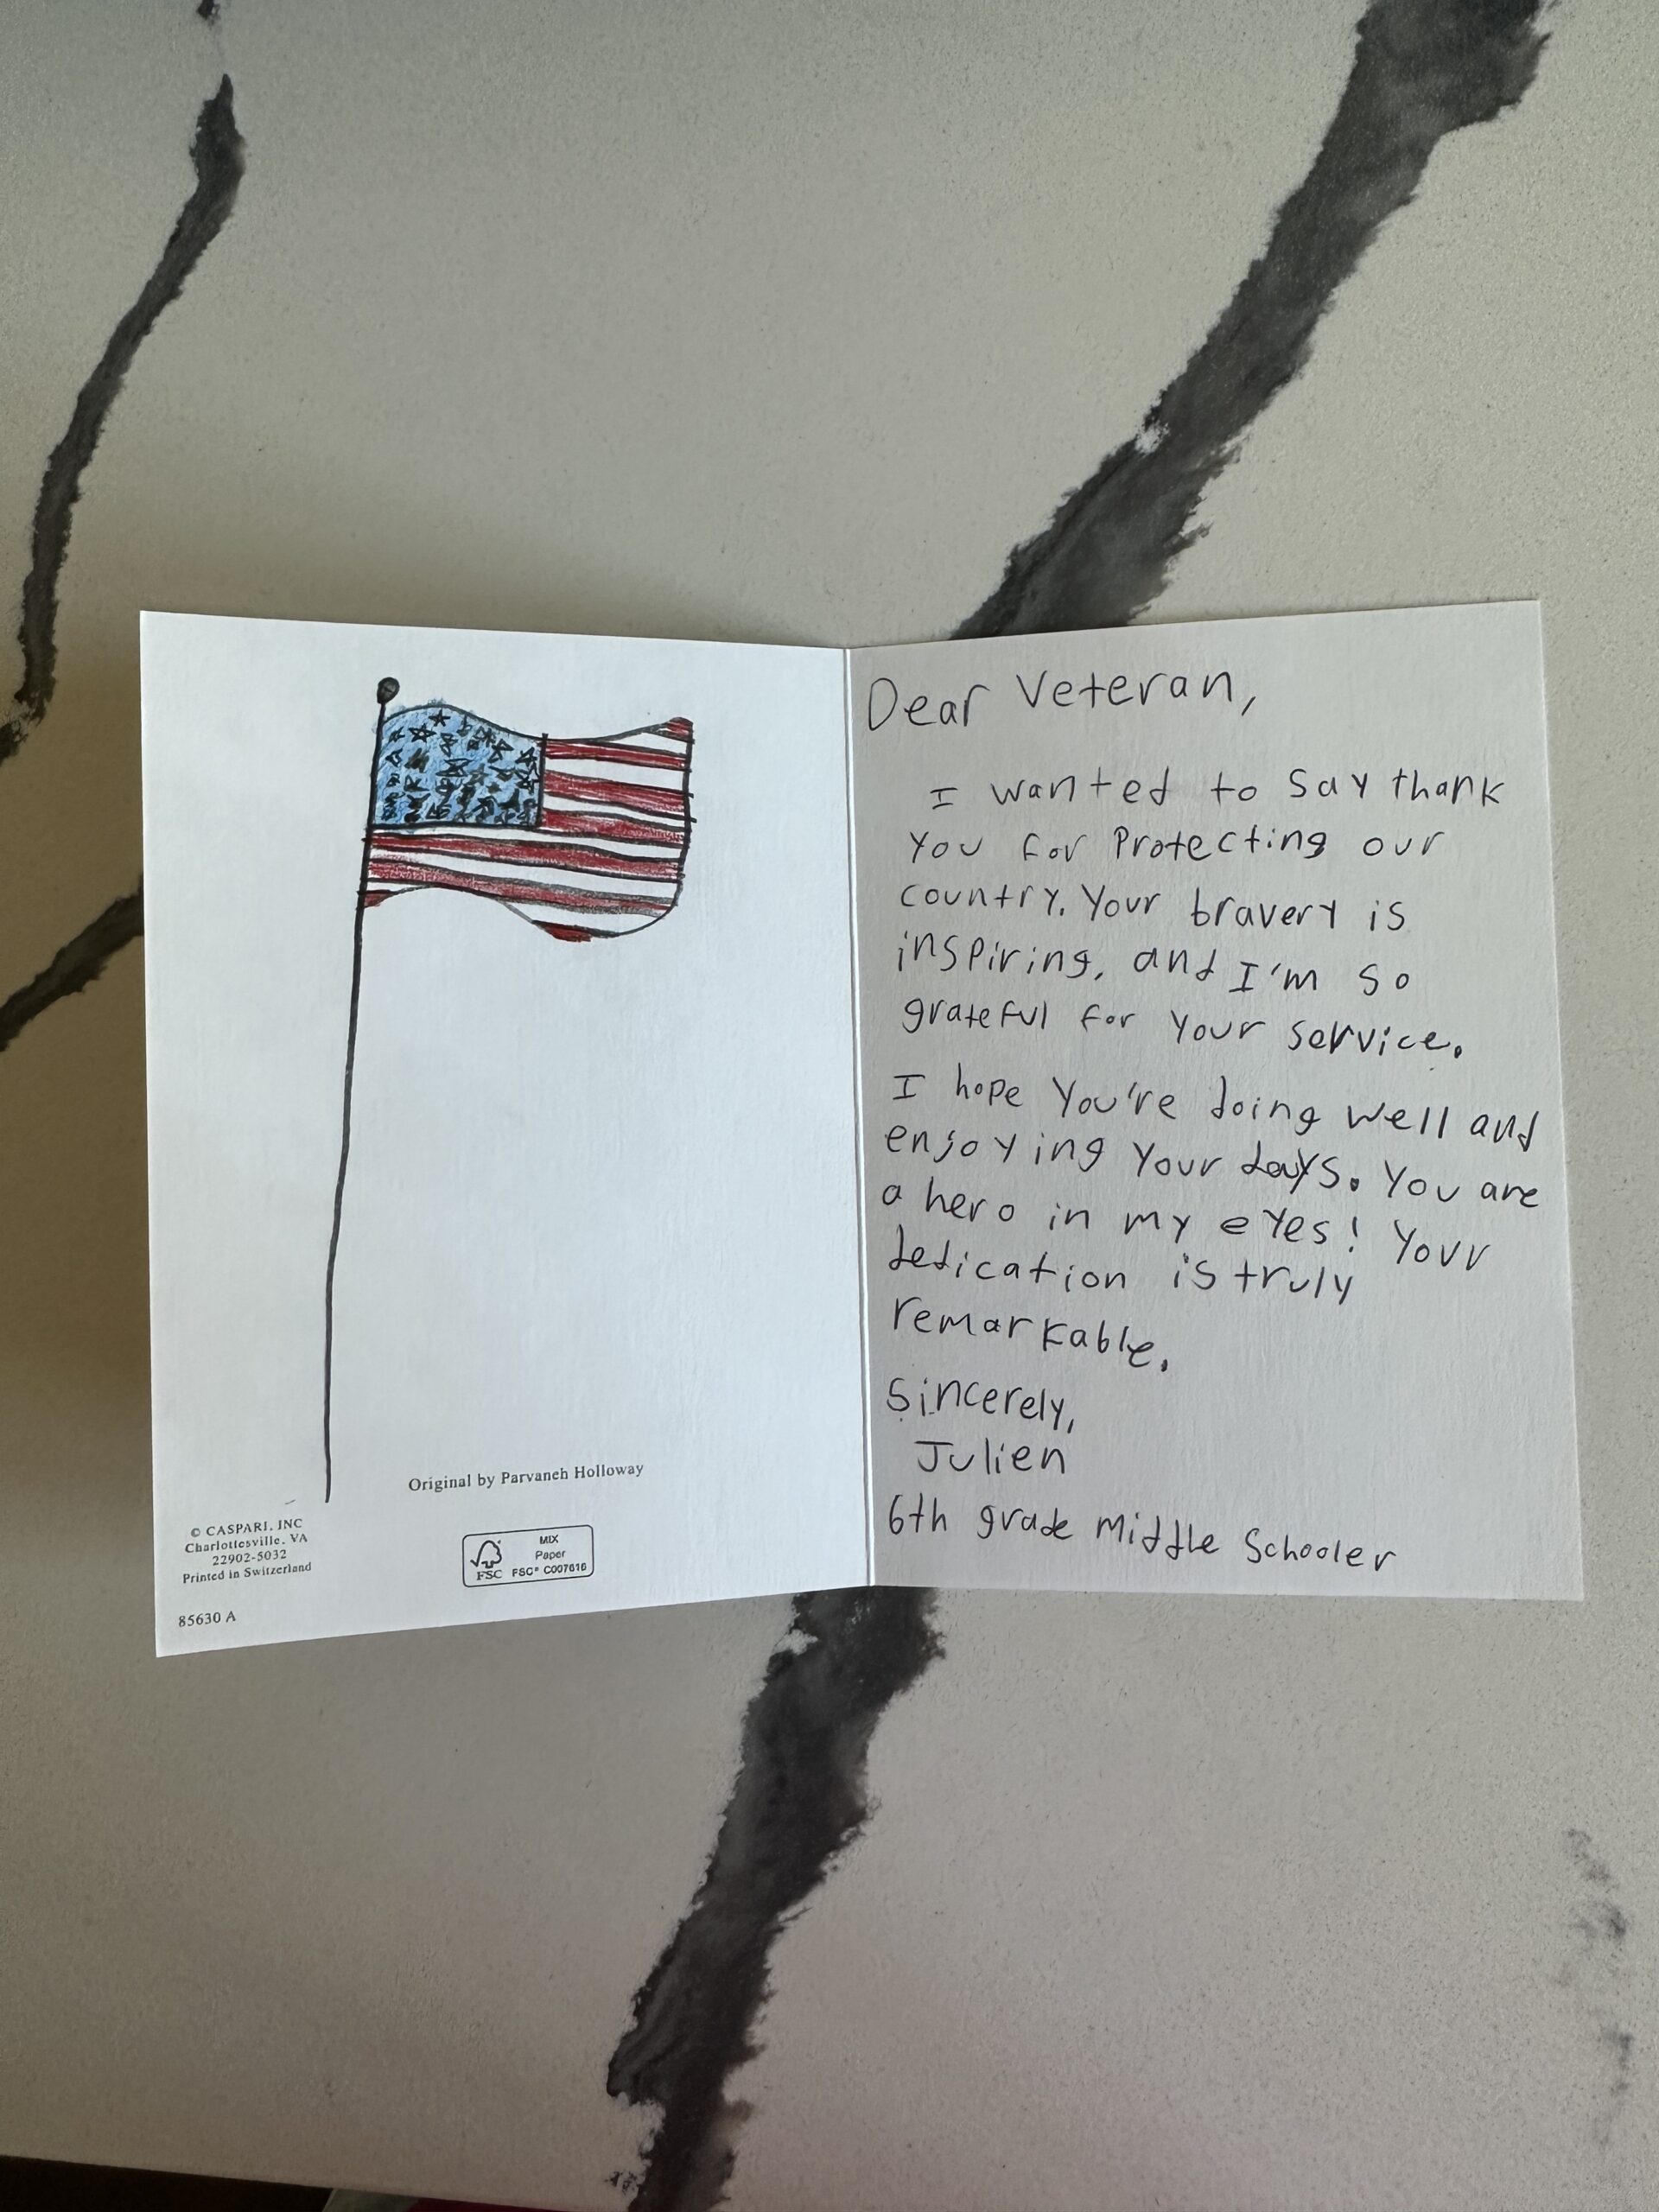 Original by Parvaneh Holloway
© CASPARI, INC
Charlottesville, VA
22902-5032
Printed in Switzerland
85630 A
FSC
MIX
Paper
FSC® C007616
Dear Veteran,
I wanted to say thank
you for protecting our
country. Your bravery is
inspiring, and I'm so
grateful for your service.
I hope you're doing well and
enjoying your days. You are
a hero in my eyes! Your
dedication is truly
remarkable.
Sincerely,
Julien
6th grade middle schooler